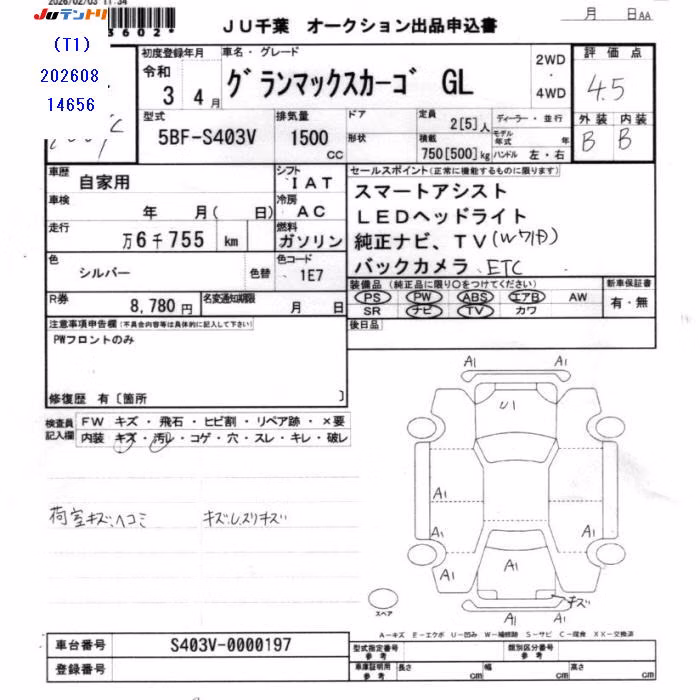 2026/02/03 11:34
JUテントリ
3602
(T1)
202608
14656
JU千葉 オークション出品申込書
月 日AA
初度登録年月
令和
3 4月
車名・グレード
グランマックスカーゴ GL
2WD
・
4WD
評価点
4.5
型式
5BF-S403V
排気量
1500
cc
ドア
形状
定員
2[5]人
積載
750[500]kg
ディーラー・並行
モデル年式 年
ハンドル 左・右
外装 内装
B B
車歴
自家用
シフト
IAT
車検
年 月( 日)
冷房
AC
走行
万6千755 km
燃料
ガソリン
色
シルバー
色替
色コード
1E7
R券
8,780円
名変通知期限
月 日
セールスポイント(正常に機能するものに限ります)
スマートアシスト
LEDヘッドライト
純正ナビ、TV(Wワイド)
バックカメラ ETC
装備品(純正品に限り〇をつけてください)
PS PW ABS エアB AW
SR ナビ TV カワ
新車保証書
有・無
後日品
注意事項申告欄(不具合内容等は具体的に記入して下さい)
PWフロントのみ
修復歴 有〔箇所 〕
検査員
記入欄
FW キズ・飛石・ヒビ割・リペア跡・×要
内装 キズ・汚レ・コゲ・穴・スレ・キレ・破レ
荷室キズ、ヘコミ
A1 A1
U1
A1
A1 A1
A1 A1 A1
キズ
A1 A1
スペア
A-キズ E-エクボ U-凹み W-補修跡 S-サビ C-腐食 XX-交換済
車台番号
S403V-0000197
登録番号
型式指定番号
参考
類別区分番号
参考
車庫証明用
参考
長さ cm
幅 cm
高さ cm